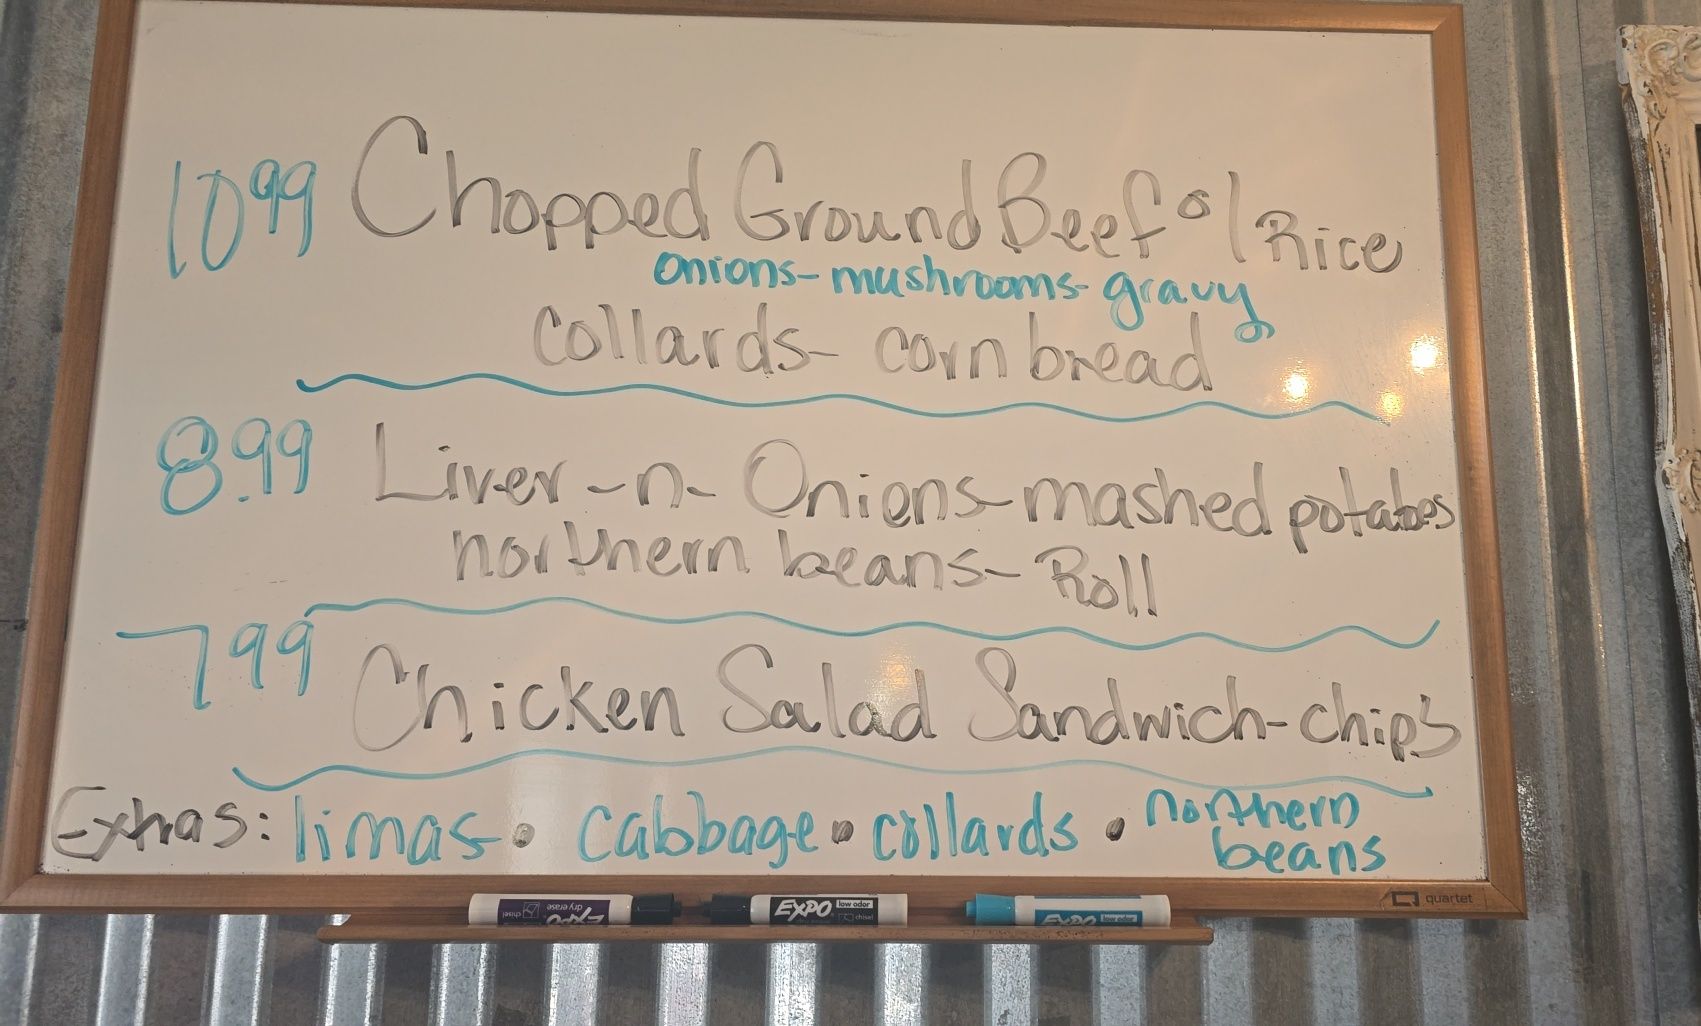 10.99 Chopped Ground Beef o/ Rice
onions-mushrooms-gravy
collards- corn bread
8.99 Liver-n-Onions-mashed potatoes
northern beans- Roll
7.99 Chicken Salad Sandwich-chips
Extras: limas • cabbage • collards • northern beans
chisel dry erase EXPO
EXPO low odor chisel
EXPO low odor
quartet